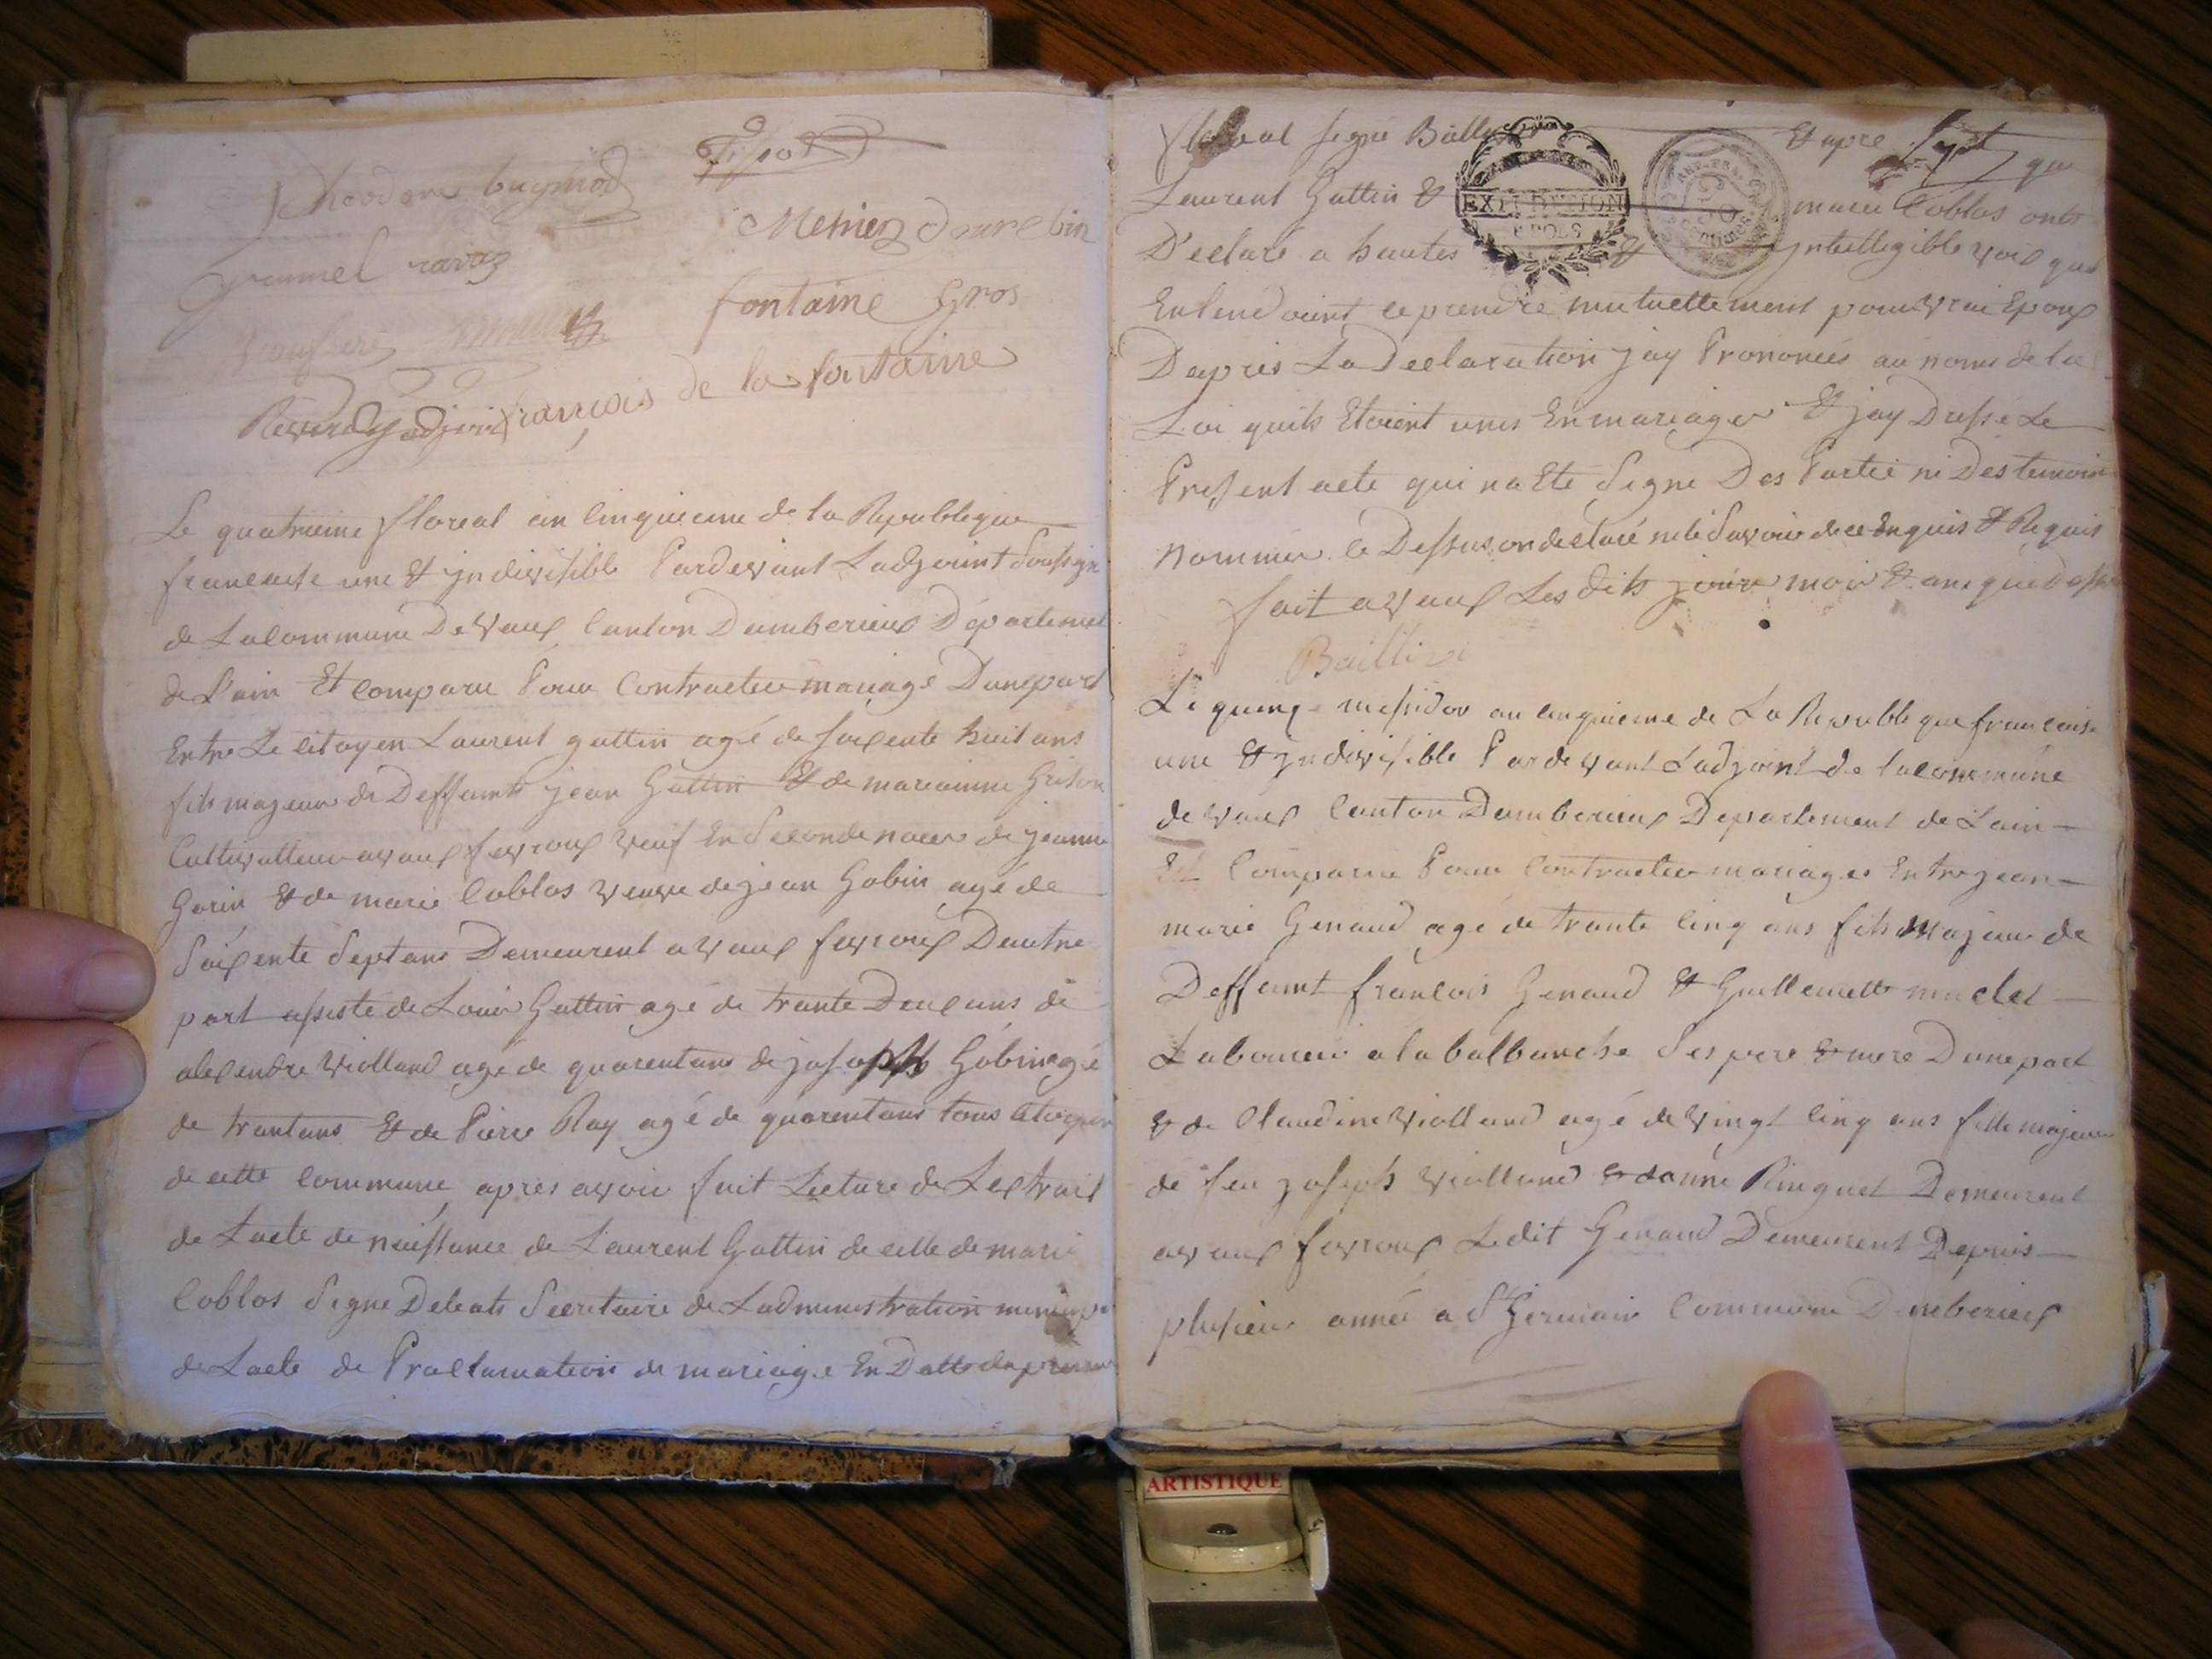 Theodore buynod
Tipot
Menier Dourebin
ravaz
fontaine gros
Reverdy adjoint francois de la fontaine
Le quatrieme floreal an cinquieme de la Republique
francaise une & yndivisible Pardevant Ladjoint Soussigne
de La Commune De Vaux Canton Damberieux Departement
de L'ain Et Comparu Pour Contracter mariage Dune part
Entre Le citoyen Laurent guttin agé de soixente huit ans
fils majeur de Deffunts jean Guttin & de marianne Grison
Cultivatteur a vaux fevroux veuf En Seconde noces de jeanne
Gorin & de marie Coblos veuve de jean Gobin agé de
Soixente Sept ans Demeurent a vaux fevroux Dautre
part assisté de Louis Guttin agé de trante Deux ans de
alexendre violland agé de quarentans de joseph Gobin agé
de trantans & de Pierre Ray agé de quarentans tous citoyen
de cette Commune apres avoir fait Lecture de Lextrait
de Lacte de neissance de Laurent Guttin de celle de marie
Coblos Signe Debeats Secretaire de Ladministration
de Lacte de Proclamation de mariage En Datte du premier
floreal signé Et apre que
Laurent Guttin & marie Coblos onts
D'eclaré a hautes & yntelligible voix quil
Entendoient ce prendre mutuellement pour vrai Epoux
Dapres La Declaration jay Prononcés au nom de la
Loi quils Etoient unis En mariage & jay Dressé Le
Present acte qui na Eté Signé Des Partie ni Des temoin
nommer ce Dessus on declaré ne le Savoir de ce Enquis & Requis
fait a vaux Les dits jour mois & an que dessus
Baillivi
Le quinz messidor an cinquieme de La Republique francaise
une & yndivisible Pardevant Ladjoint de la commune
de vaux Canton Damberieux Departement de Lain
Et Comparu Pour Contracter mariages Entre jean
marie Genaud agé de trante cinq ans fils majeur de
Deffunt francois Genaud & Guillemette muclet
Laboureur a la balbanche Ses pere & mere Dune part
& de Claudine violland agé de vingt cinq ans fille majeure
de feu joseph violland & danne Ringuet Demeurent
a vaux fevroux Ledit Genaud Demeurent Depuis
plusieur anné a St Germain Commune Damberieux
EXPEDITION
REP. FRA.
50
Centimes
ARTISTIQUE